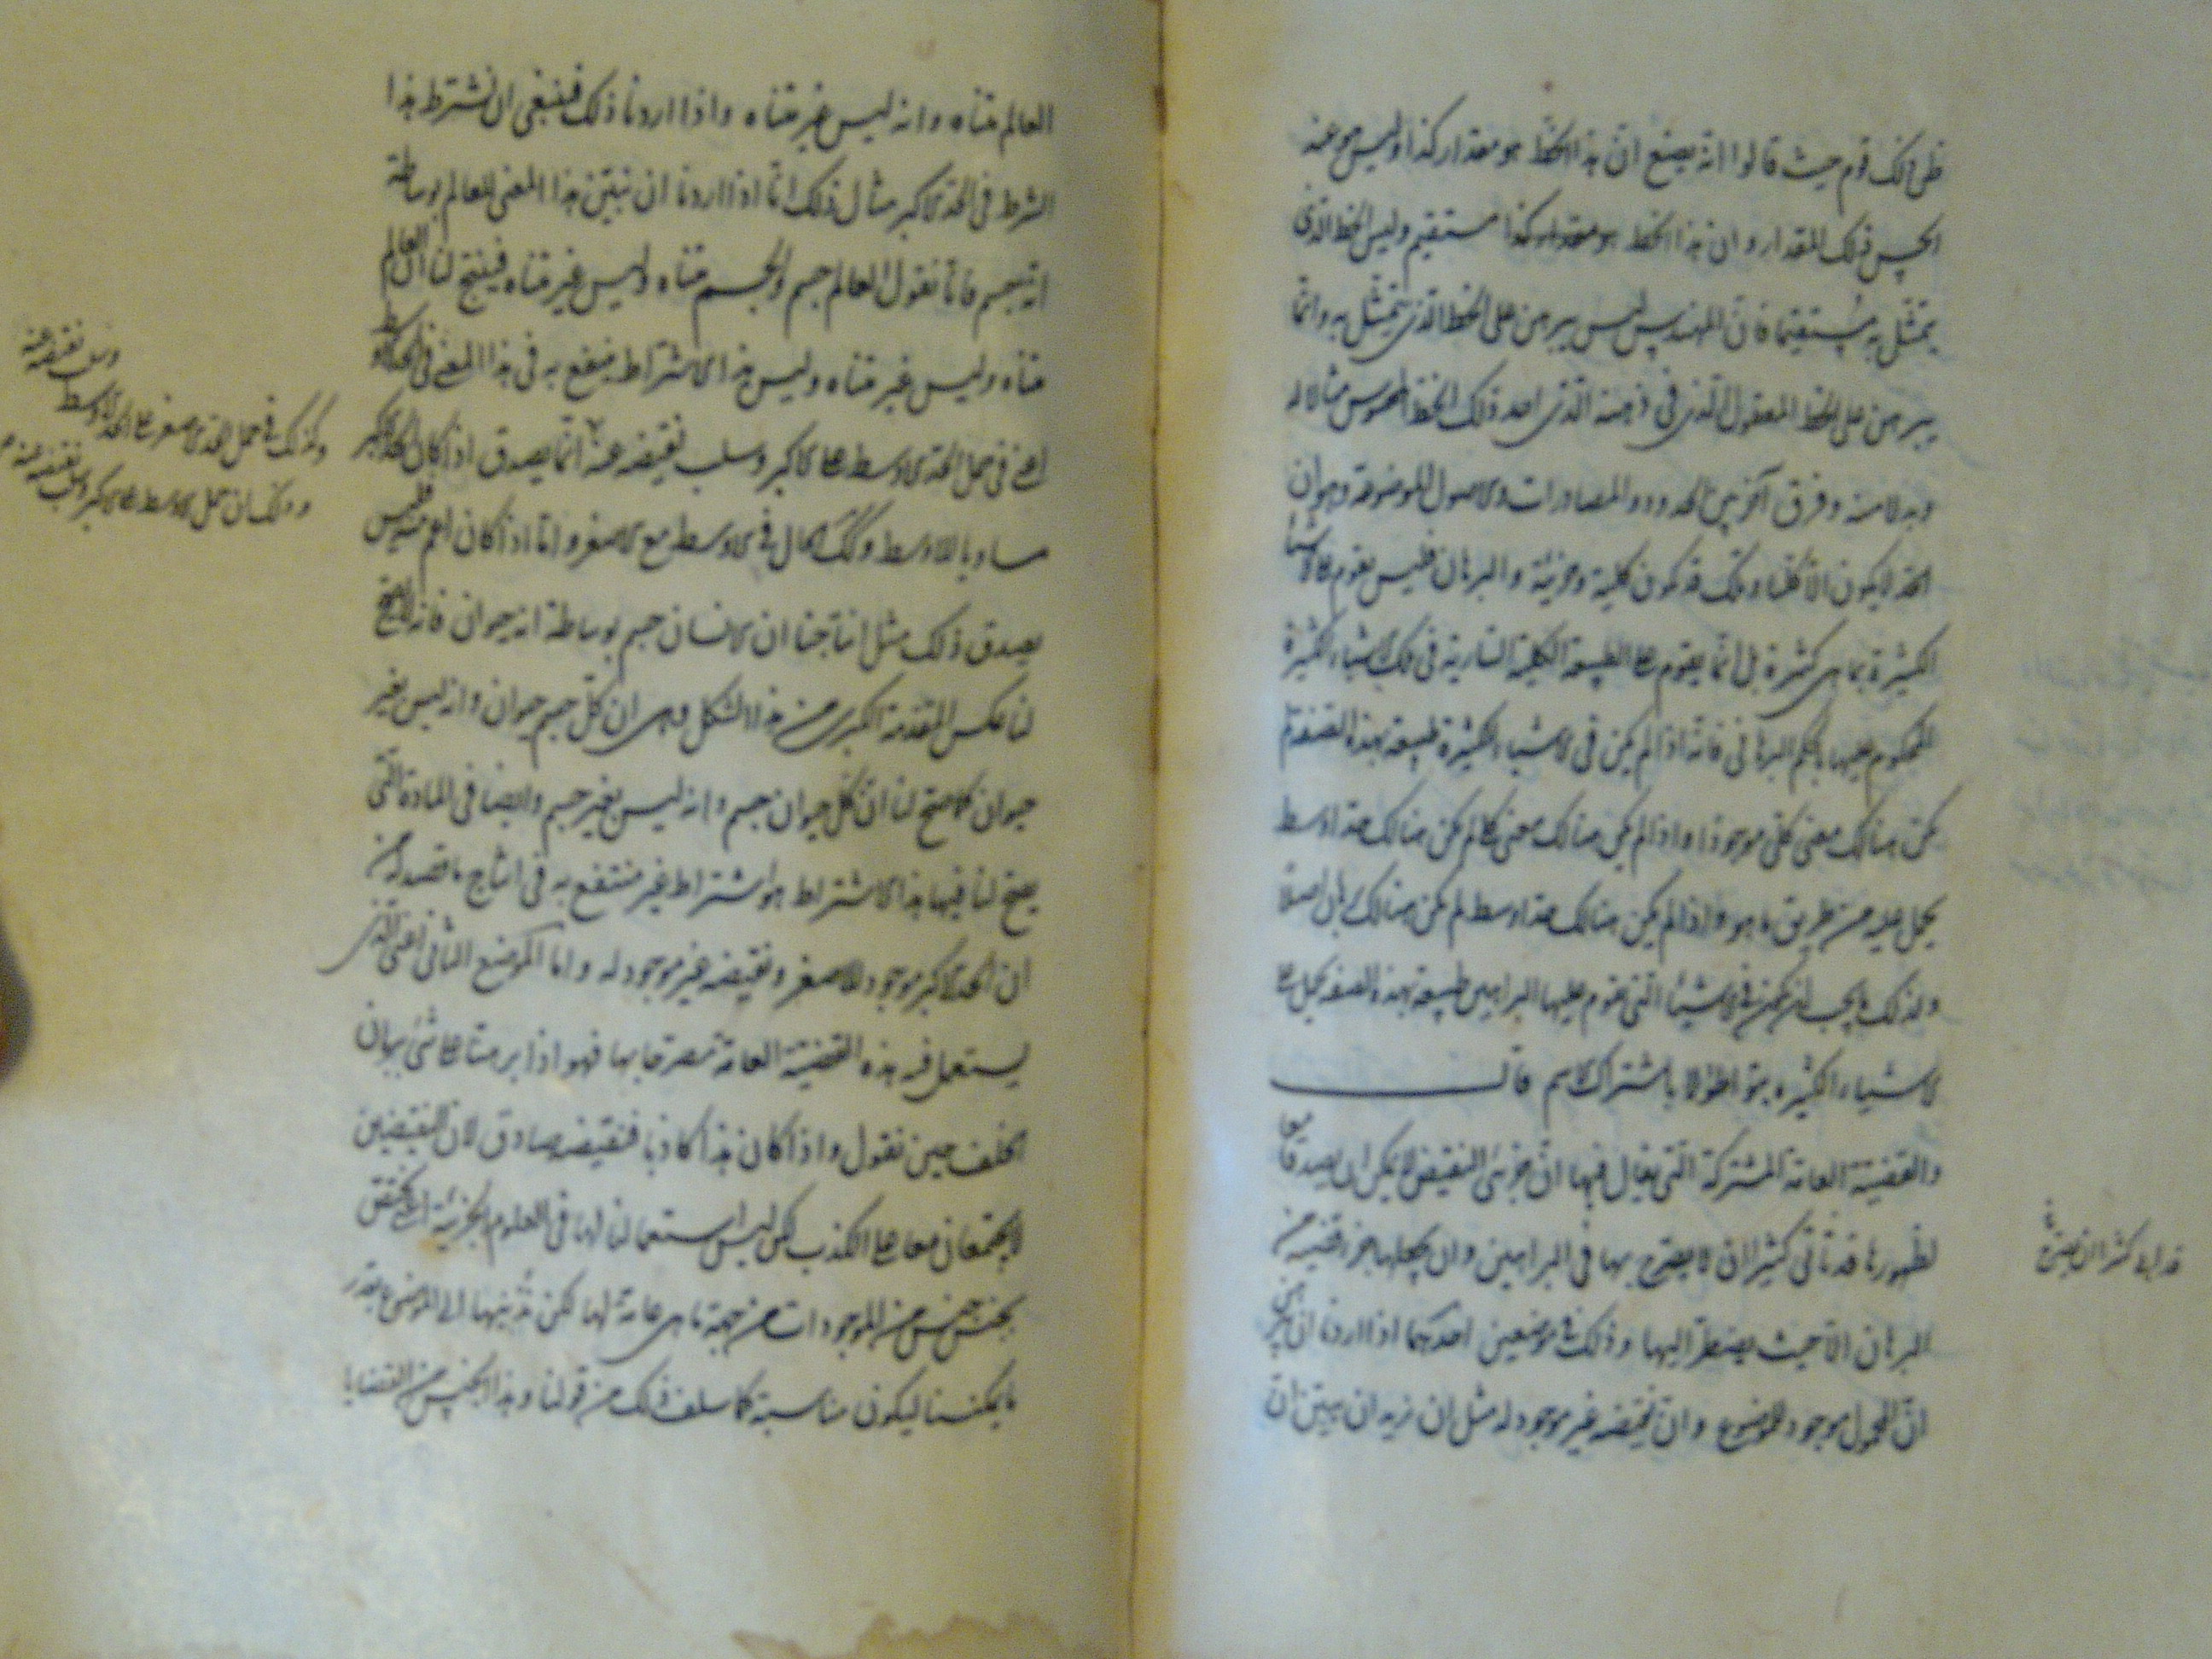 ظن ذلك قوم حيث قالوا انه يضع ان هذا الخط هو مقدار كذا وليس هو عند
الحس ذلك المقدار وان هذا الخط هو مقدار كذا مستقيم وليس الخط الذى
يتمثل به مستقيما فان المهندس ليس يبرهن على الخط الذى يتمثل به وانما
يبرهن على الخط المعقول الذى فى ذهنه الذى اعد ذلك الخط المحسوس مثالا له
وبدلا منه وفرق آخر بين الحدود والمصادرات والاصول الموضوعة وهو ان
الحد لا يكون الا كليا وتلك قد تكون كلية وجزئية والبرهان فليس يقوم على الاشياء
الكثيرة بما هى كثيرة بل انما يقوم على الطبيعة الكلية السارية فى تلك الاشياء الكثيرة
المحكوم عليها بالحكم البرهانى فانه اذا لم يكن فى الاشياء الكثيرة طبيعة بهذه الصفة لم
يكن هنالك معنى كلى موجودا واذا لم يكن هنالك معنى كلى لم يكن هنالك حد اوسط
يحمل عليه من طريق ما هو واذا لم يكن هنالك حد اوسط لم يكن هنالك برهان اصلا
ولذلك ما يجب ان يكون فى الاشياء التى تقوم عليها البراهين طبيعة بهذه الصفة تحمل على
الاشياء الكثيرة بتواطؤ لا باشتراك الاسم قال
والقضية العامة المشتركة التى يقال فيها ان جزئى النقيض لا يمكن ان يصدقا معا
لظهورها قد تأتى كثيرا ان لا يصرح بها فى البراهين وان يجعلها جزء قضية من
البرهان الا حيث يضطر اليها وذلك فى موضعين احدهما اذا اردنا ان نبين
ان المحمول موجود للموضوع وان نقيضه غير موجود له مثل ان نريد ان نبين ان
كثيرا ان يصرح
العالم متناه وانه ليس غير متناه واذا اردنا ذلك فينبغى ان نشترط هذا
الشرط فى الحد الاكبر مثال ذلك انا اذا اردنا ان نبين هذا المعنى للعالم بوساطة
انه جسم فانا نقول العالم جسم والجسم متناه وليس غير متناه فينتج لنا ان العالم
متناه وليس غير متناه وليس هذا الاشتراط ينتفع به فى هذا المعنى فى الحد الاوسط
اعنى فى حمل الحد الاوسط على الاكبر وسلب نقيضه عنه انما يصدق اذا كان الحد الاكبر
مساويا للاوسط وكذلك الحال فى الاوسط مع الاصغر واما اذا كان اعم منه فليس
يصدق ذلك مثل انتاجنا ان الانسان جسم بوساطة انه حيوان فانه لا يصح
لنا عكس المقدمة الكبرى من هذا الشكل وهى ان كل جسم حيوان وانه ليس بغير
حيوان كما صح لنا ان كل حيوان جسم وانه ليس بغير جسم وايضا فى المادة التى
يصح لنا فيها هذا الاشتراط هو اشتراط غير منتفع به فى انتاج ما قصد له من
ان الحد الاكبر موجود للاصغر ونقيضه غير موجود له واما الموضع الثانى اعنى الذى
يستعمل فيه هذه القضية العامة مصرحا بها فهو اذا برهنا على شئ ببرهان
الخلف حين نقول واذا كان هذا كاذبا فنقيضه صادق لان النقيضين
لا يجتمعان معا على الكذب لكن ليس استعمالنا لها فى العلوم الجزئية التى تختص
بجنس جنس من الموجودات من جهة ما هى عامة لها لكن ندنيها الى الموضوع بقدر
ما يمكننا ليكون مناسبة كما سلف ذلك من قولنا وهذا الجنس من القضايا
وكذلك فى حمل الحد الاصغر على الحد الاوسط
وسلب نقيضه عنه
وذلك ان حمل الاوسط على الاكبر وسلب نقيضه عنه